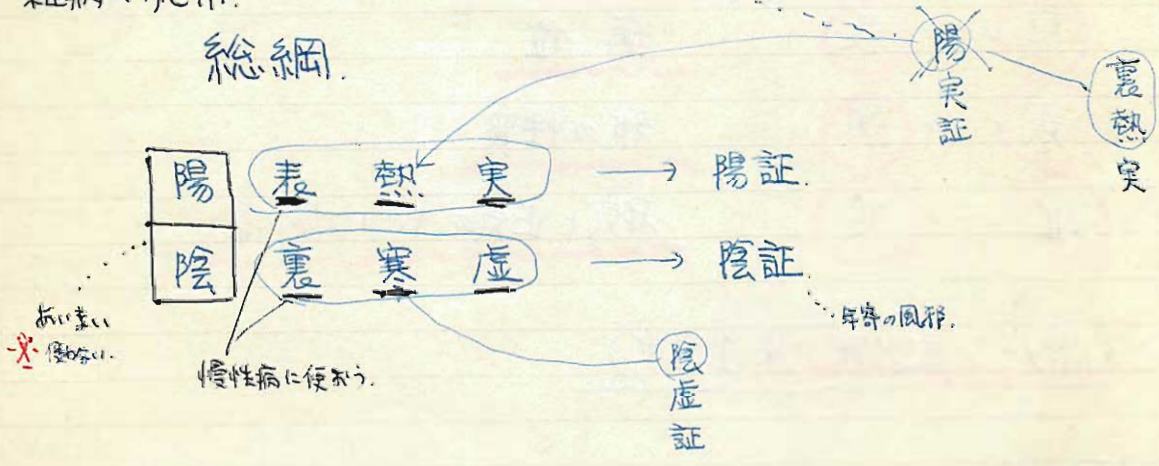 総綱.
陽実証
裏熱実
陽 表 熱 実 → 陽証.
陰 裏 寒 虚 → 陰証
年寄の風邪.
慢性病に使おう.
陰虚証